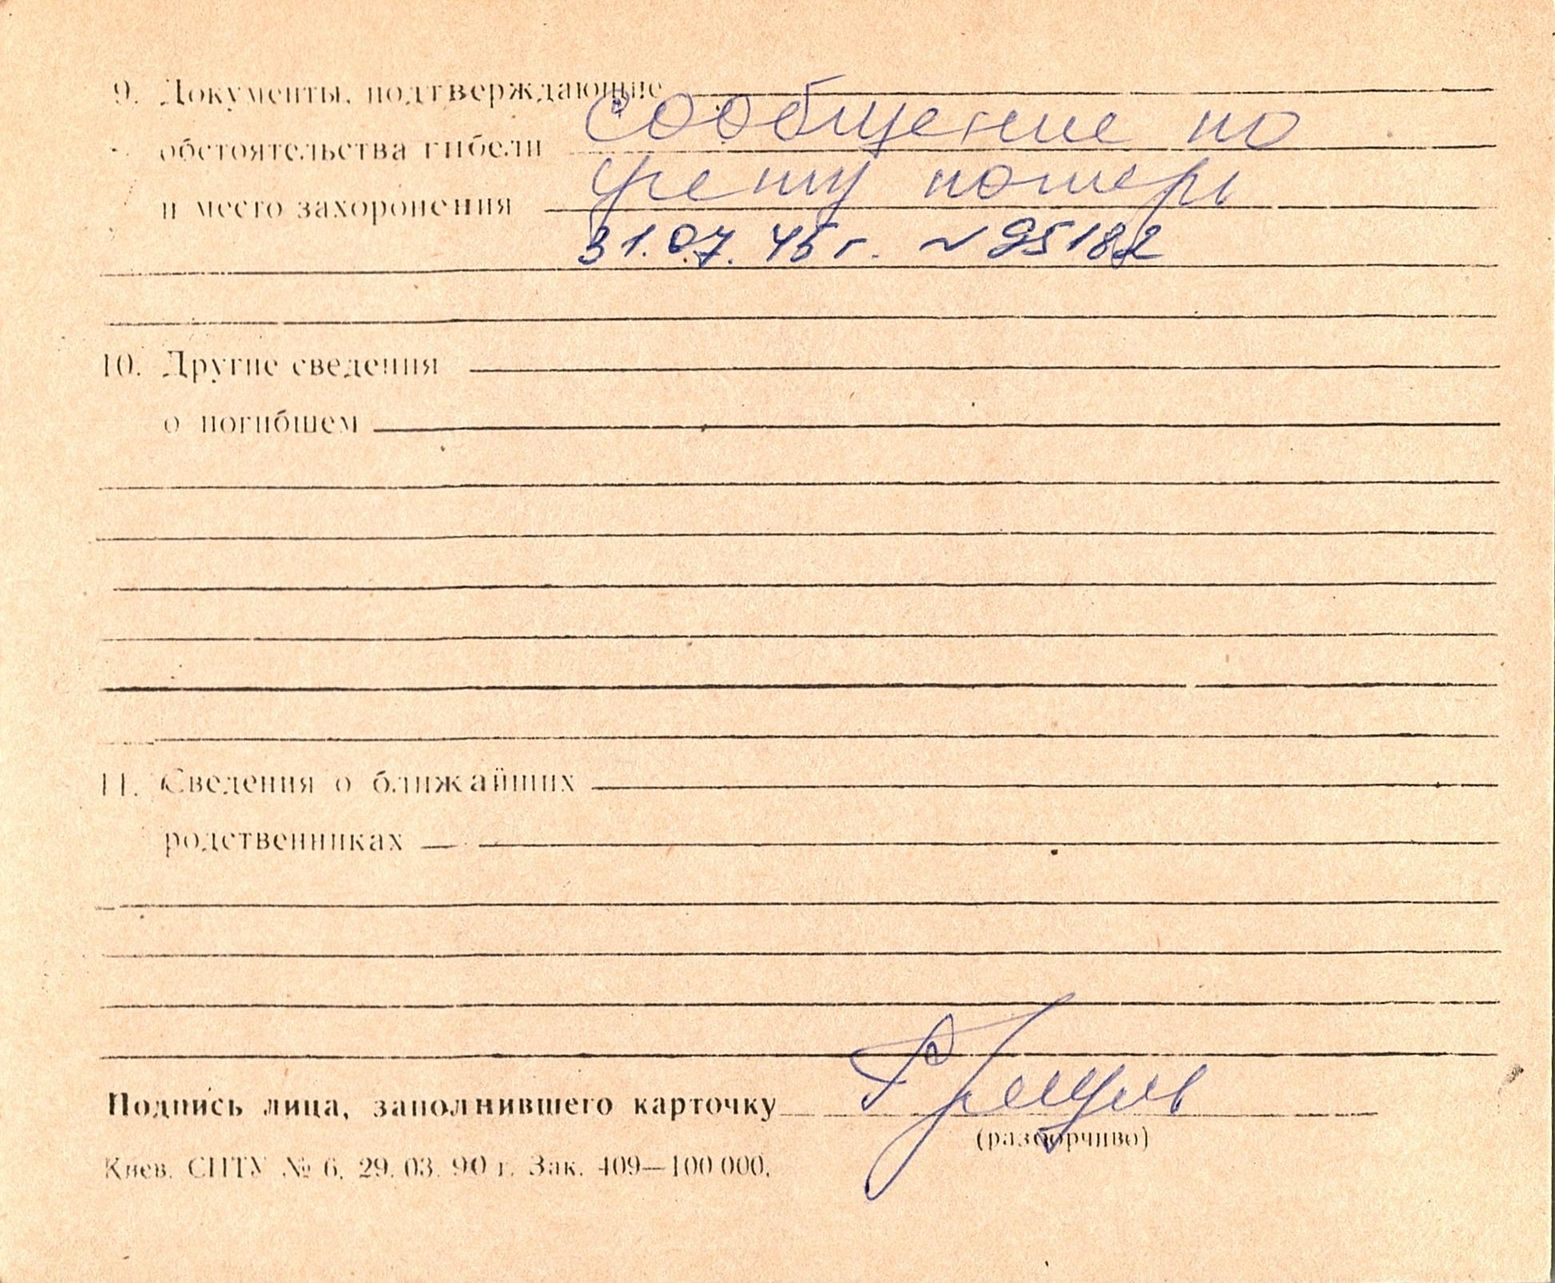 9. Документы, подтверждающие
обстоятельства гибели сообщение по
и место захоронения учету потерь
31.07.45 г. N 95182
10. Другие сведения
о погибшем
11. Сведения о ближайших
родственниках
Подпись лица, заполнившего карточку
(разборчиво)
Киев. СПТУ № 6. 29.03.90 г. Зак. 409—100 000.